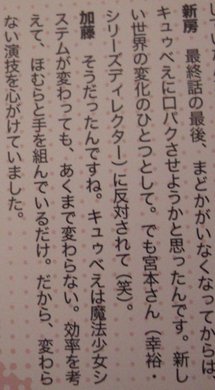 新房　最終話の最後、まどかがいなくなってからは、
キュゥべえに口パクさせようかと思ったんです。新し
い世界の変化のひとつとして。でも宮本さん（幸裕・
シリーズディレクター）に反対されて（笑）。
加藤　そうだったんですね。キュゥべえは魔法少女シ
ステムが変わっても、あくまで変わらない。効率を考
えて、ほむらと手を組んでいるだけ。だから、変わら
ない演技を心がけていました。